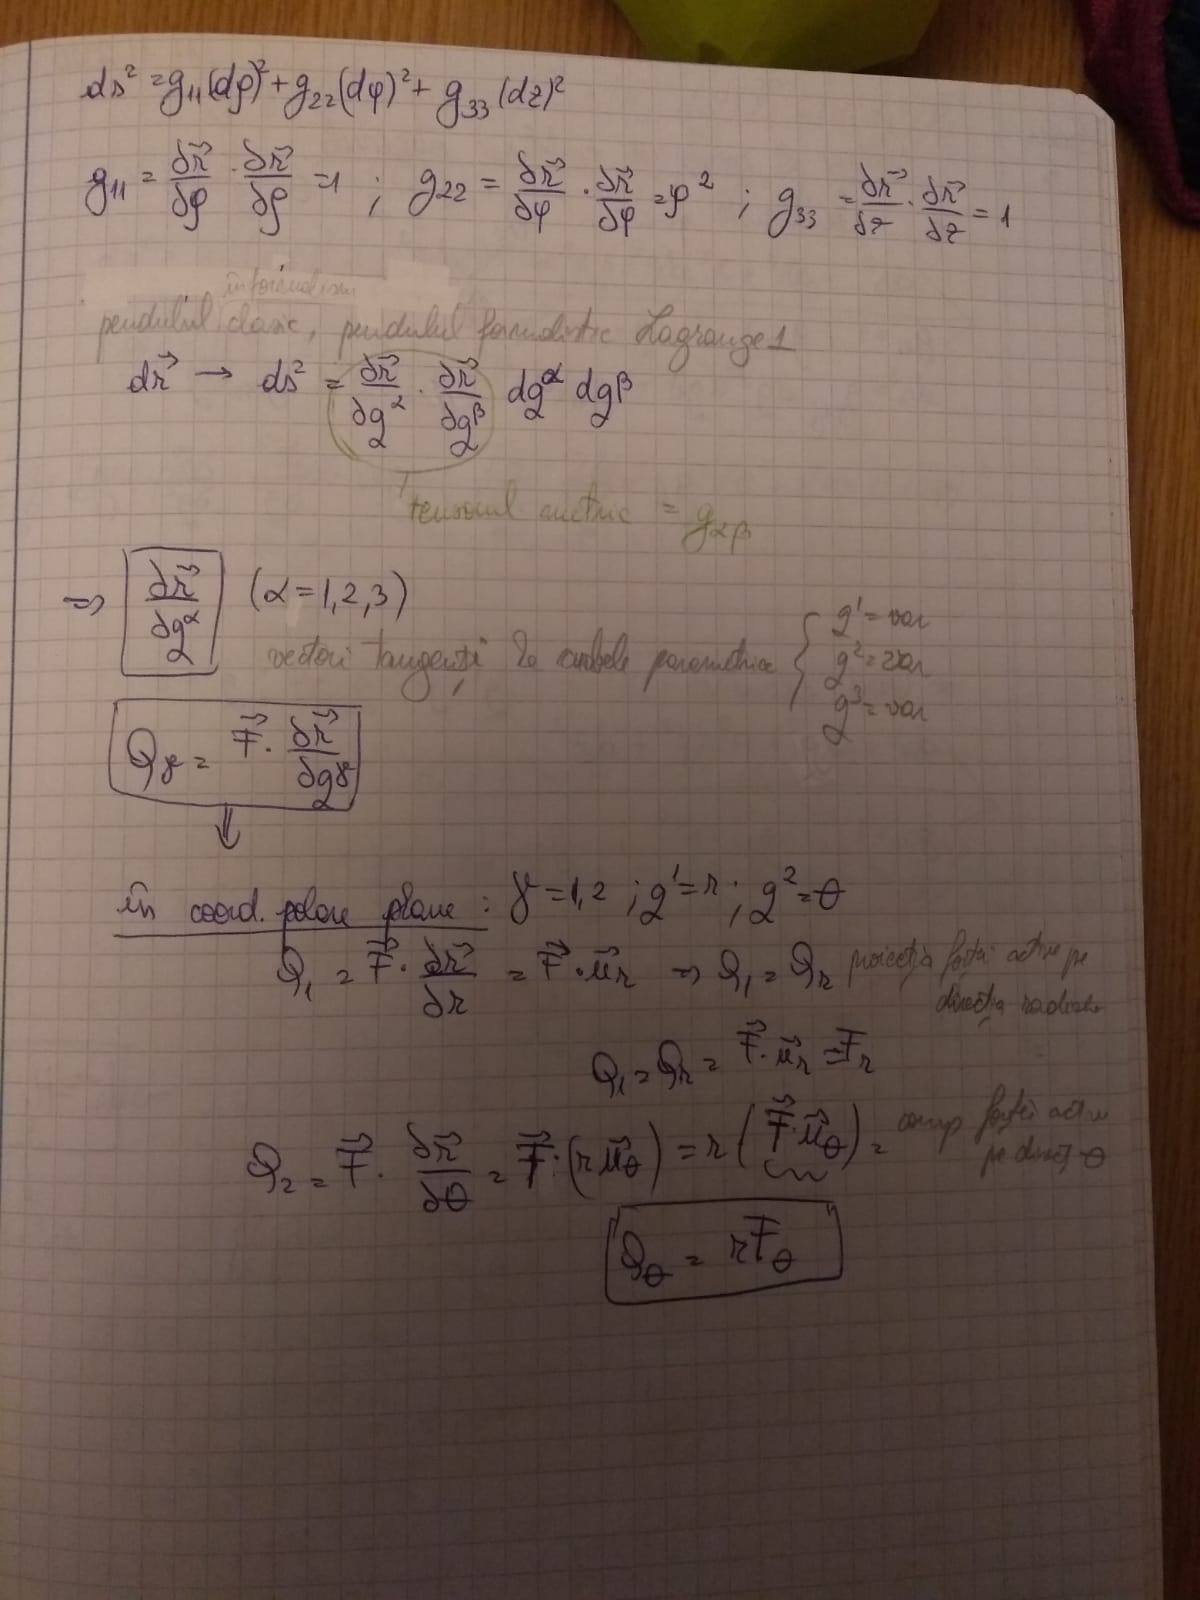 ds² = g₁₁(dρ)² + g₂₂(dφ)² + g₃₃(dz)²
g₁₁ = δr⃗/δρ · δr⃗/δρ = 1 ; g₂₂ = δr⃗/δφ · δr⃗/δφ = ρ² ; g₃₃ = δr⃗/δz · δr⃗/δz = 1
pendulul clasic, pendulul Lagrange 1
dr⃗ → ds² = δr⃗/δq^α · δr⃗/δq^β dq^α dq^β
tensorul metric = g_αβ
⇒ δr⃗/δq^α (α = 1,2,3)
vectori tangenți la curbele parametrice { q¹ = var
q² = var
q³ = var
Q_γ = F⃗ · δr⃗/δq^γ
↓
în coord. polare plane : γ = 1,2 ; q¹ = r ; q² = θ
Q₁ = F⃗ · δr⃗/δr = F⃗ · u⃗_r ⇒ Q₁ = Q_r proiecția forței active pe
direcția radială
Q₁ = Q_r = F⃗ · u⃗_r = F_r
Q₂ = F⃗ · δr⃗/δθ = F⃗ · (r u⃗_θ) = r (F⃗ · u⃗_θ) = comp forței active
pe direcț θ
Q_θ = r F_θ